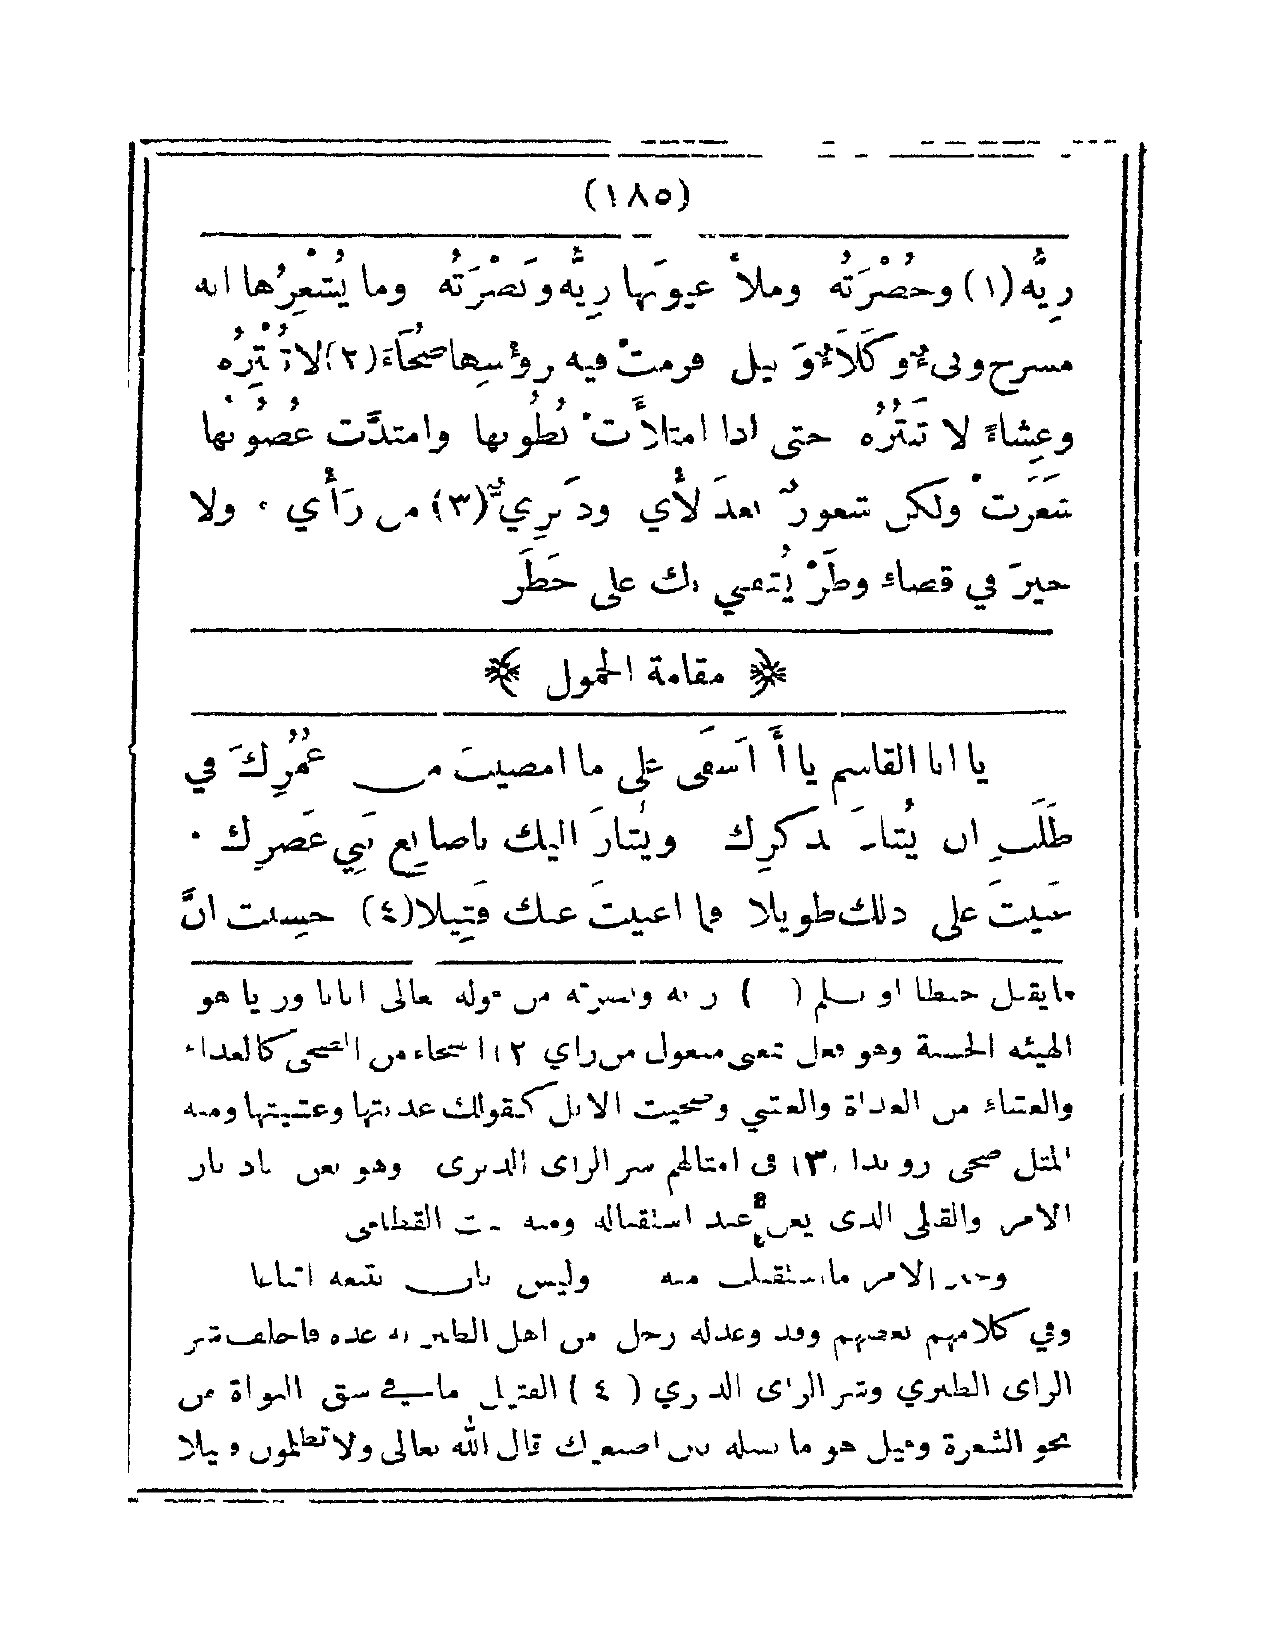 (١٨٥)
رِيُّه (١) وحُضْرَتُه وملأَ عيونَها رِيُّه ونَضْرَتُه وما يُشْعِرُها انه
مسرح وبيءٌ وكَلَأٌ وَبيل فرمتْ فيه رؤُسها ضَحَآءَ (٢) لا تُبْتِرُه
وعِشاءً لا تَبْتُرُه حتى اذا امتلأَتْ بُطُونها وامتدَّت غُضُونُها
شَعَرَتْ ولكن شعورٌ بعدَ لأْيٍ ودَبَرِيٌّ (٣) من رَأْي ٠ ولا
خيرَ في قضاء وطَرْ يُشفي بك على خَطَر
﴿ مقامة الخمول ﴾
يا ابا القاسم يا أَسَفَى على ما امضيتَ من عُمُرِكَ في
طَلَبِ ان يُشادَ بذكرِك ويُشارَ اليك باصابع بَني عَصرِك ٠
عَنيتَ على ذلك طويلا فما اغنيتَ عنك فَتِيلا (٤) حسِبتَ انَّ
الهيئه الحسنة وهو فعل بمعنى مفعول من راي ٢ الضحاء من الضحى كالغداء
والعشاء من الغداة والعشي وضحيت الابل كقولك غديتها وعشيتها ومنه
المثل ضحى رويدا ٣ في امثالهم شر الراى الدبرى وهو بعد بار
الامر والقبلي الذى يعن عند استقباله ومنه بيت القطامى
وخير الامر ما استقبلت منه وليس بان تتبعه اتباعا
وفي كلامهم بعضهم وقد وعدله رجل من اهل الطبر به عده فاخلف شر
الراى الطبري وشر الراى الدبري ( ٤ ) الفتيل ما في شق النواة من
نحو الشعرة وقيل هو ما تفتله بين اصبعيك قال الله تعالى ولا تظلمون فتيلا